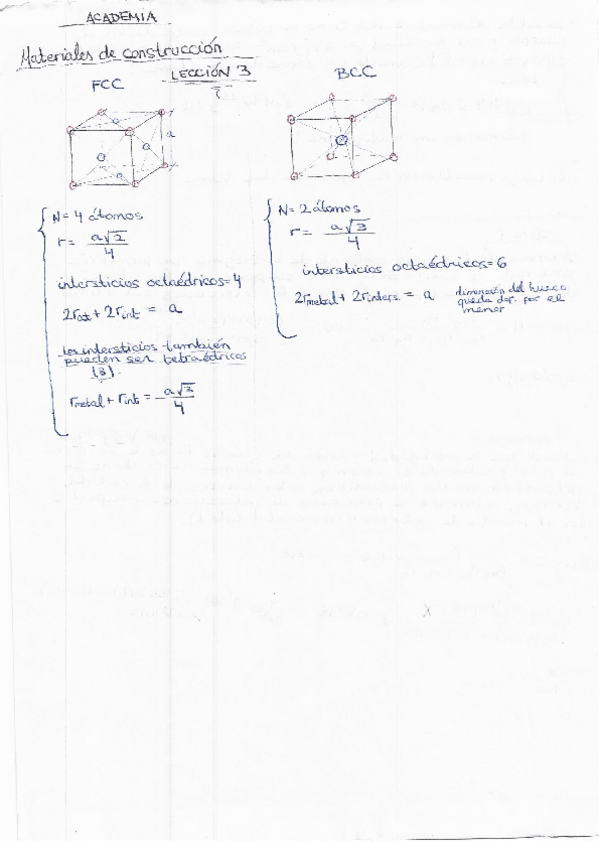 ACADEMIA
Materiales de construcción
LECCIÓN 3
FCC
a
N= 4 átomos
r= a√2/4
intersticios octaédricos=4
2rat + 2rint = a
los intersticios también
pueden ser tetraédricos
(8).
rmetal + rint = a√3/4
BCC
N= 2 átomos
r= a√3/4
intersticios octaédricos=6
2rmetal + 2rinters. = a
dimensión del hueco
queda dar. por el
menor
X